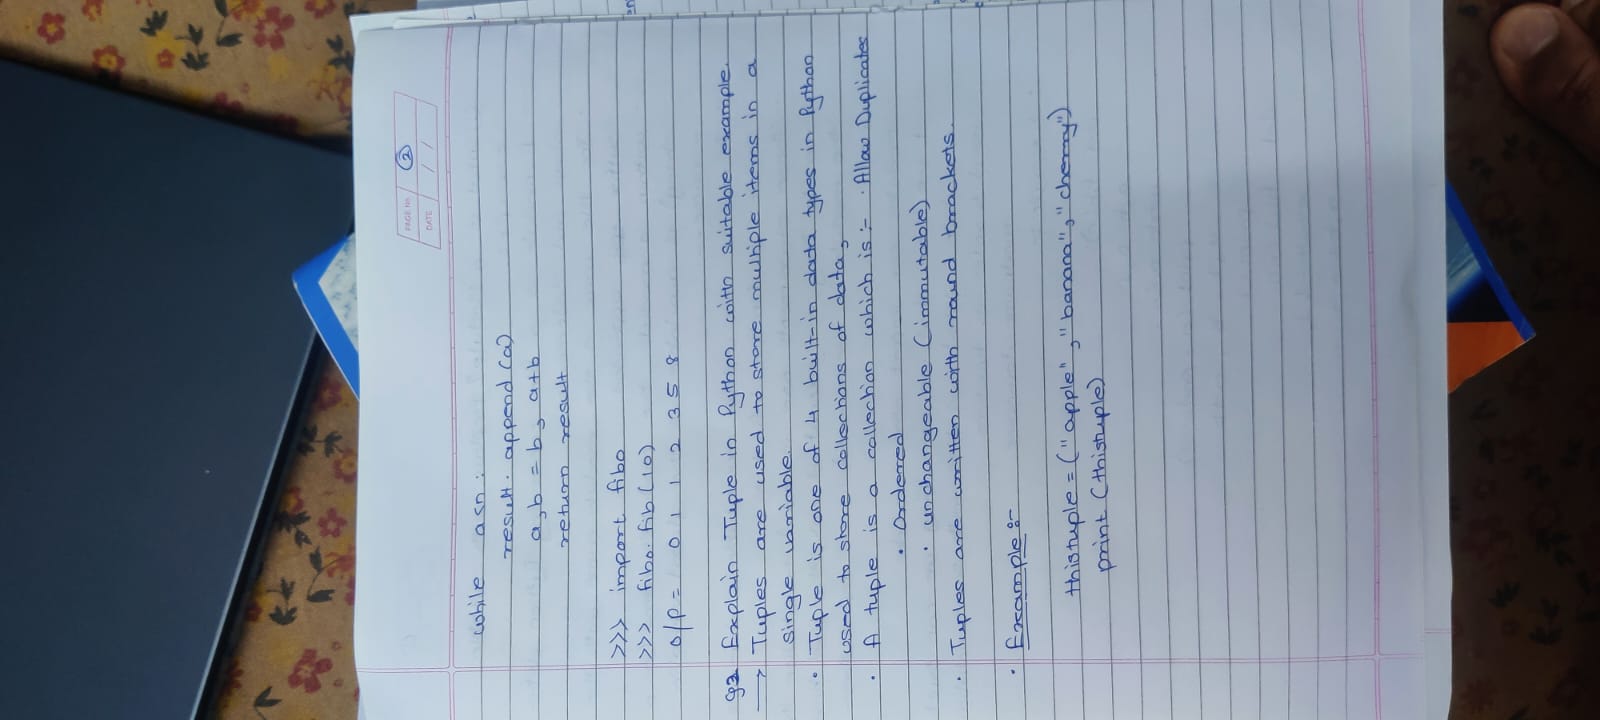 PAGE No. 2
DATE / /
while a<n:
result. append (a)
a,b = b, a+b
return result
>>> import fibo
>>> fibo. fib (10)
o/p = 0 1 1 2 3 5 8
Q2 Explain Tuple in Python with suitable example.
→ Tuples are used to store multiple items in a
single variable.
• Tuple is one of 4 built-in data types in Python
used to store collections of data,
• A tuple is a collection which is :- • Allow Duplicates
• Ordered
• unchangeable (immutable)
• Tuples are written with round brackets.
• Example :-
thistuple = ("apple", "banana", "cherry")
print (thistuple)